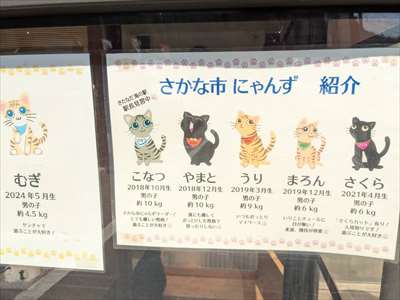 さかな市 にゃんず 紹介
むぎ
2024年5月生
男の子
約 4.5 kg
ヤンチャで
遊ぶことが大好き♡
駅長見習中
こなつ
2018年10月生
男の子
約 10 kg
やまと
2018年12月生
男の子
約 10 kg
うり
2019年3月生
男の子
約 9 kg
いつもおっとり
マイペース♡
まろん
2019年12月生
男の子
約 6 kg
さくら
2021年4月生
男の子
約 6 kg
遊ぶことが大好き♡